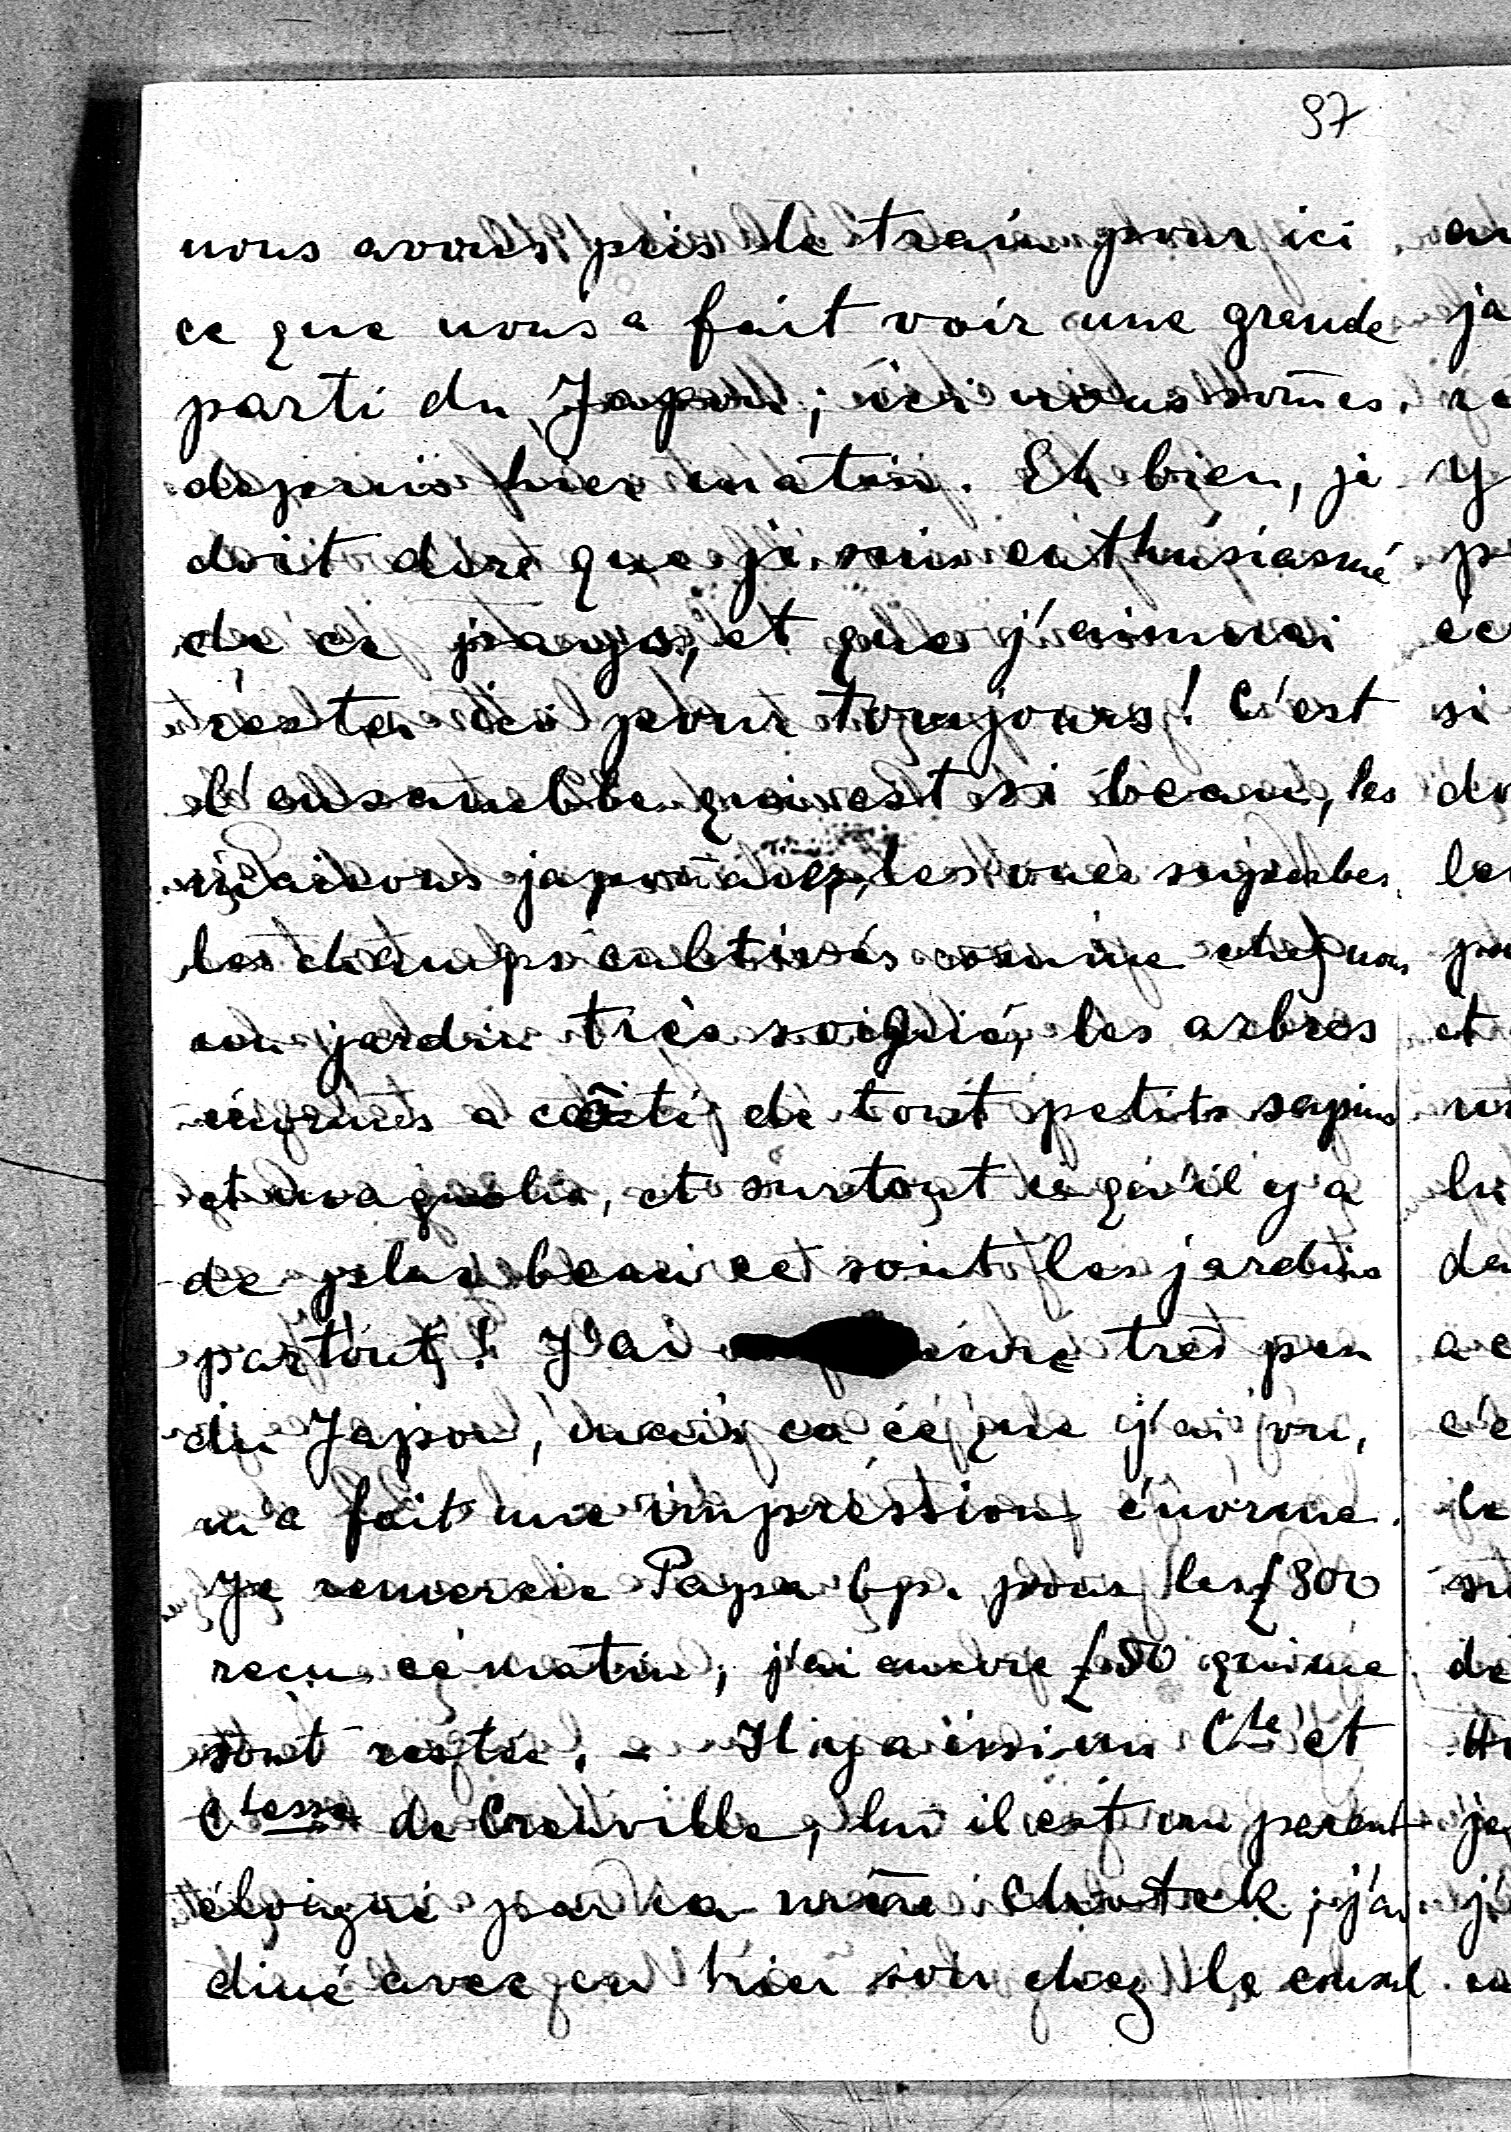 97
nous avons pris le train pour ici
ce que nous a fait voir une grande
parti du Japon; ici nous som̄es
depuis hier matin. Eh bien, je
doit dire que je suis enthusiasmé
de ce pays, et que j'aimerai
rester ici pour toujours! C'est
l'ensamelble qui est si beau, les
maisons japonaises, les vues superbes
les champs cultivés comme chez nous
un jardin très soigné, les arbres
énormes a côté de tout petits sapins
et magnolia, et surtout ce qu'il y a
de plus beau ce sont les jardins
partout! J'ai encore très peu
du Japon, mais ca ce que j'ai vu,
m'a fait une impréssion énorme.
Je remercie Papa bp. pour les £300
reçu ce matin; j'ai encore £50 qui me
sont restée. – Il y a issi un Cte et
Ctesse de Crenville, lui il est un parent
éloigné par sa mère Chotek; j'ai
diné avec eu hier soir chez le consul